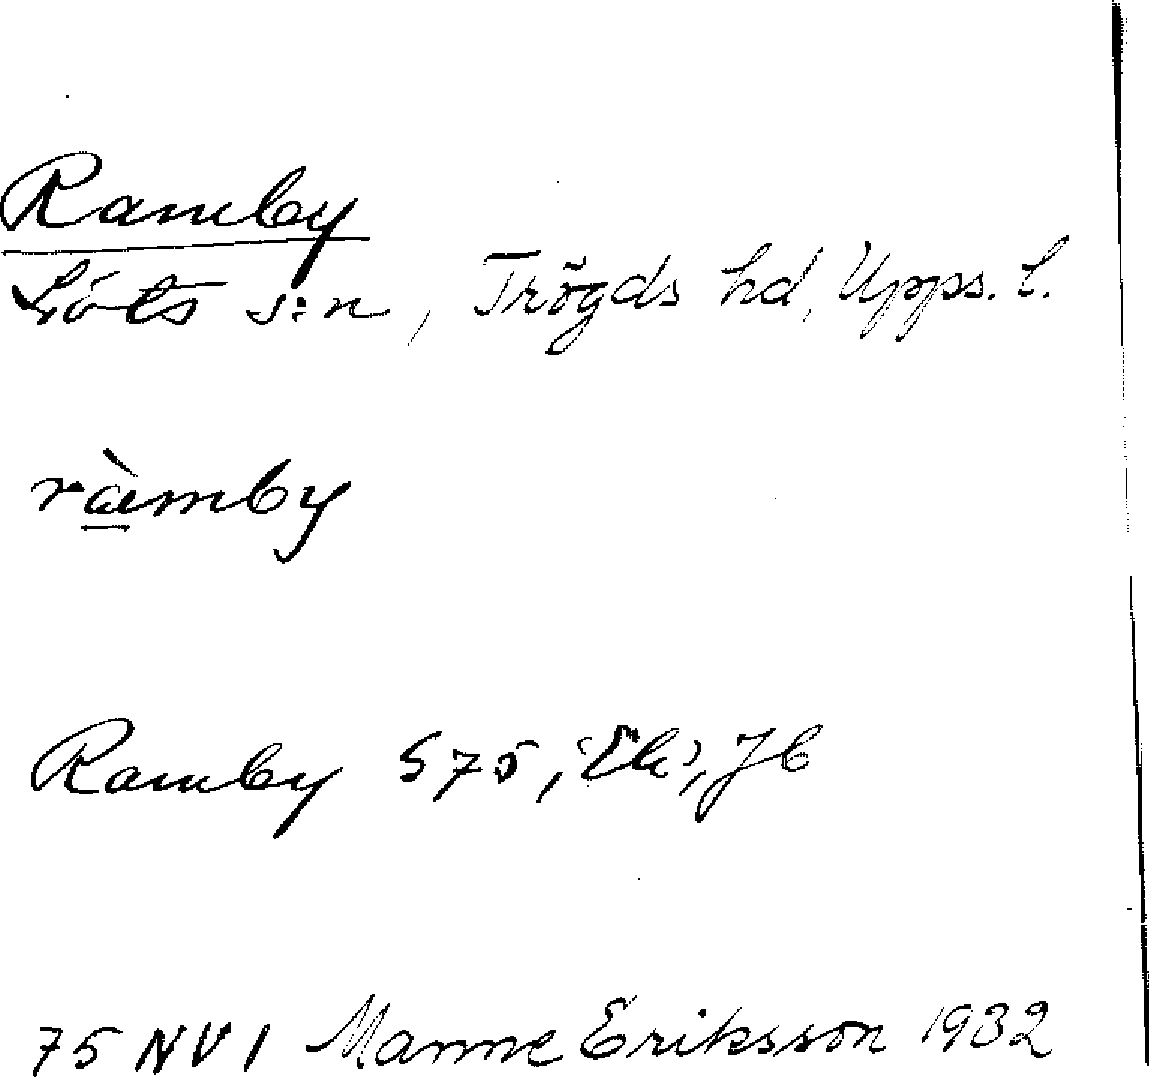 Ramby
Löts s:n, Trögds hd, Upps. l.
ràmby
Ramby S 75, Ek, Jb
75 NV 1 Manne Eriksson 1932